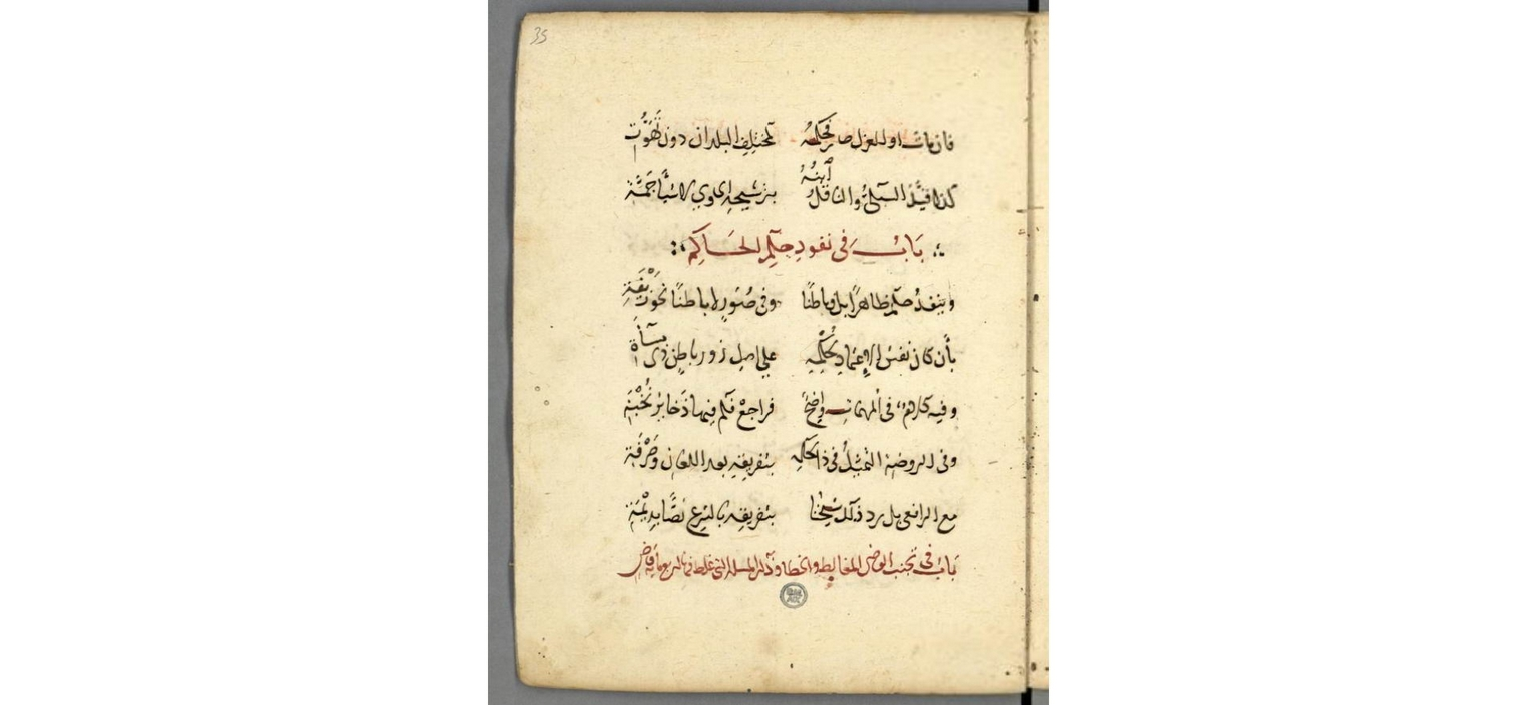 35
فان مات او للعزل صار فحكمه لمختلف البلدان دون تهوت
كذا قيد السبكي والناقل ابنه بترشيحه
باب في نفوذ حكم الحاكم
وينفذ حكم ظاهرًا بل وباطنًا وفي صُوَرٍ لا باطنًا نحو
بأن كان نفس الاعتماد بحكمه على اصل زور باطن
وفيه كلام في المهمات واضح فراجع فكم فيها ذخائر نُخْبَة
وفي الروضة التمثيل في ذا بحكمه بتفريقه بعد اللعان وحُرْقَة
مع الرافعي بل رد ذلك شيخنا بتفريقه بالشرع نصًّا
باب في تجنب القاضي المغاليط والخطا وذكر المسلة التي غلط فيها اربعماية قاض